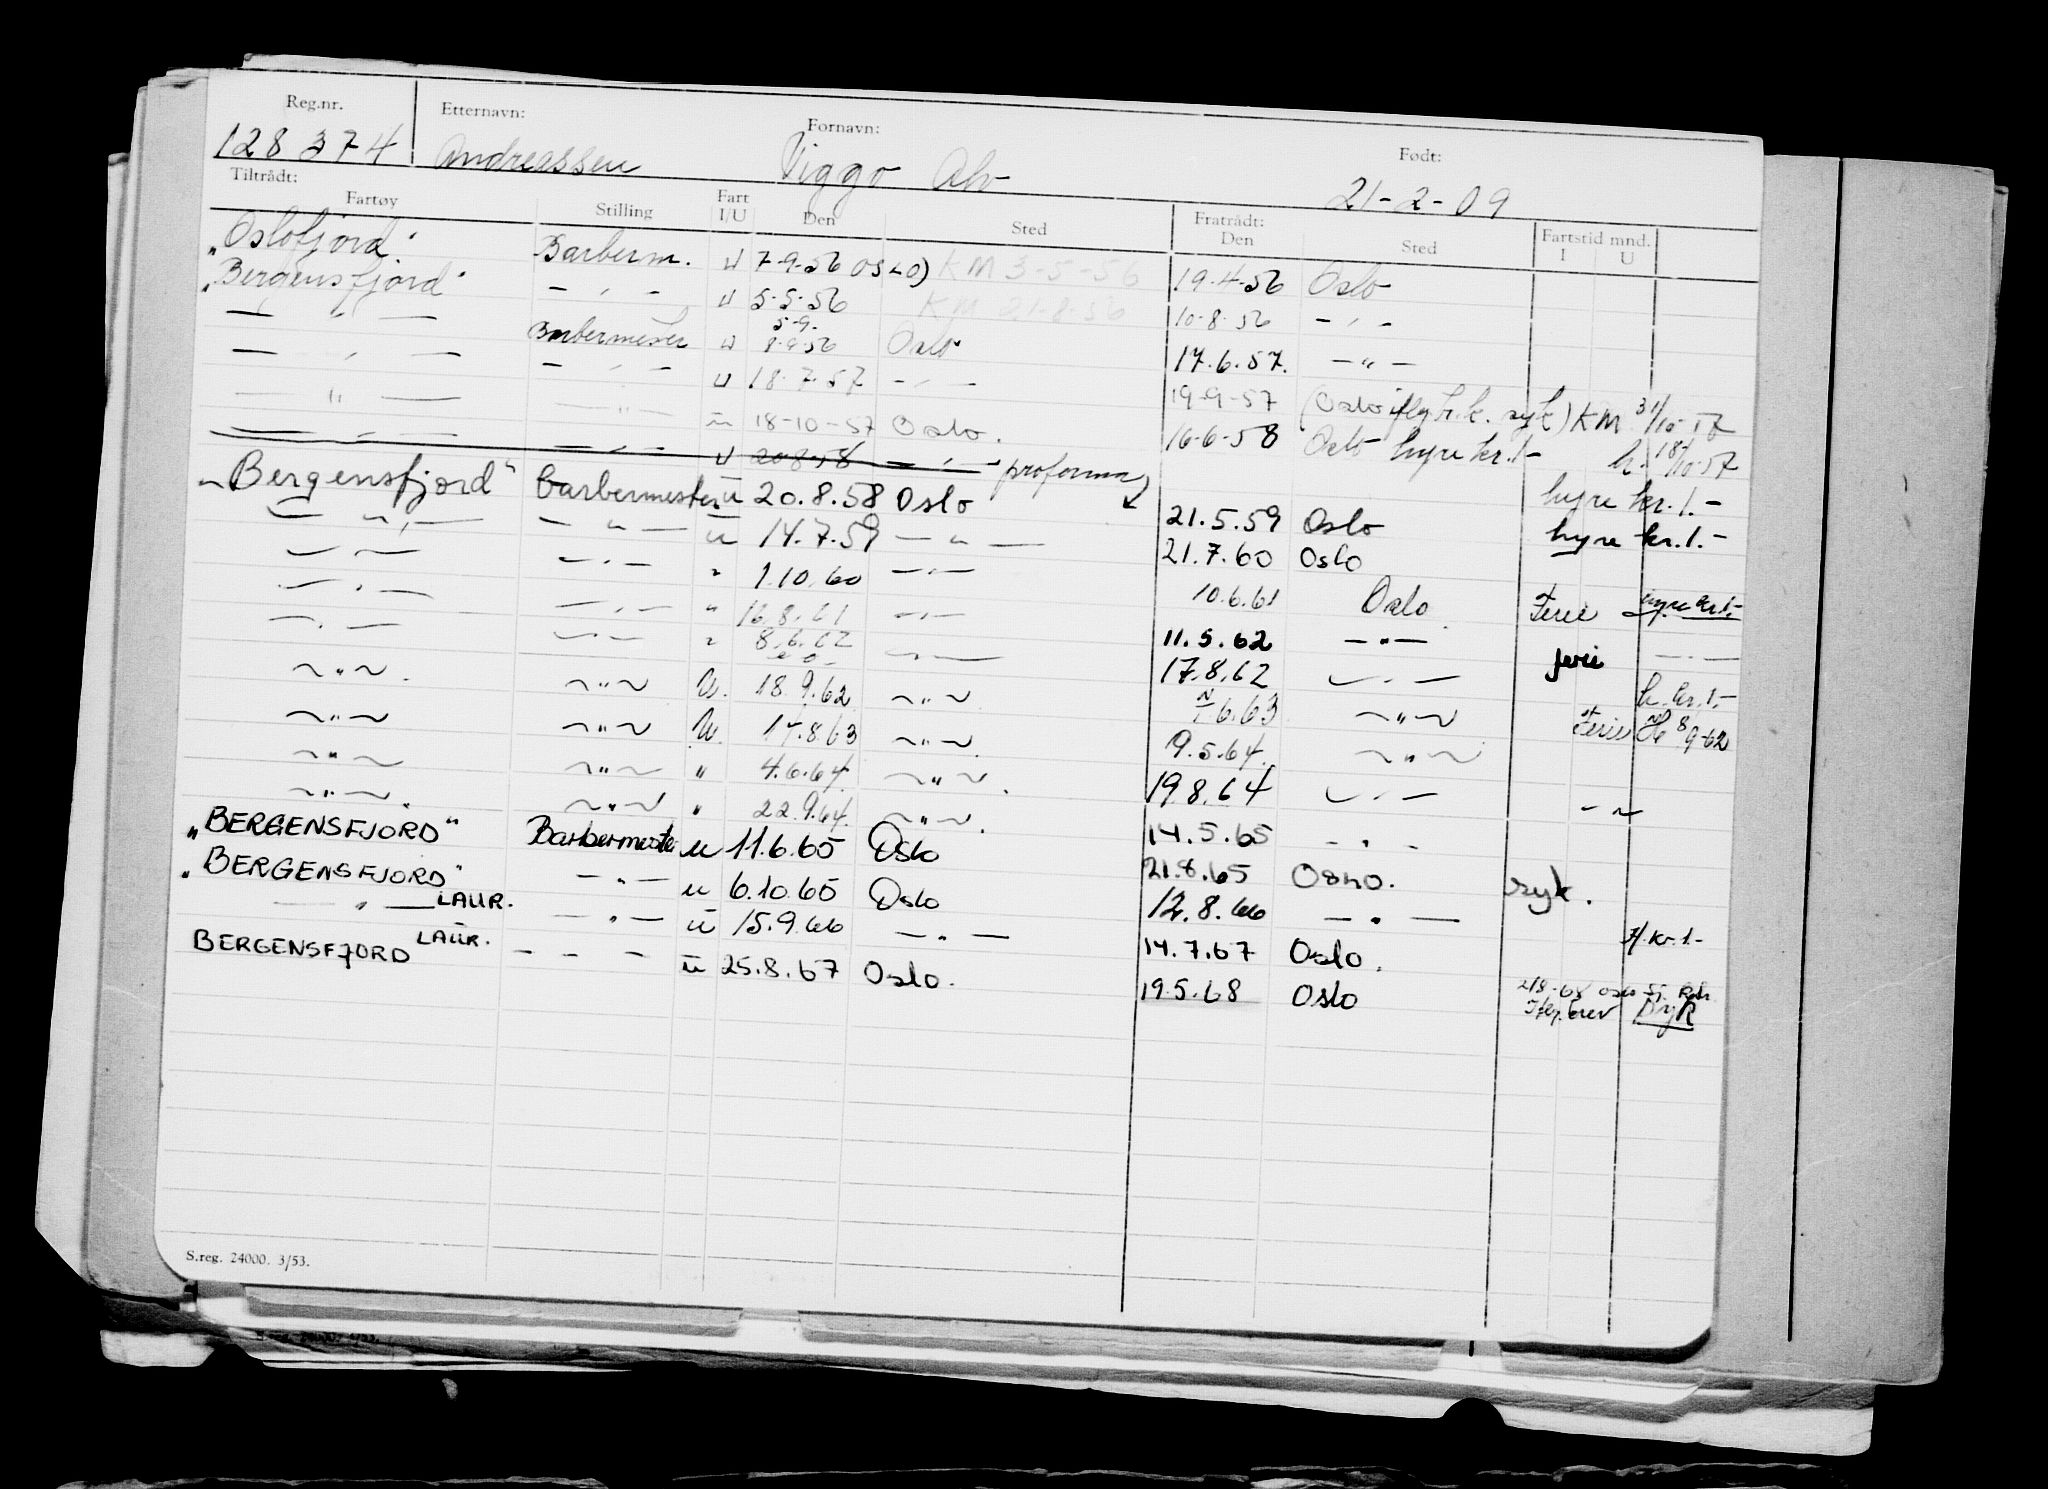 Reg.nr. Etternavn: Fornavn: Født:
128374 Andreassen Viggo Alv 21-2-09
Tiltrådt: Fratrådt:
Fartøy Stilling Fart I/U Den Sted Den Sted Fartstid mnd. I U
"Oslofjord" Barberm. u 7-9-56 OSLO) KM 3-5-56 19-4-56 Oslo
"Bergensfjord" — " — u 5-5-56 KM 21-8-56 10-8-56 — " —
— " — Barbermester u 5-9- 8-9-56 Oslo 17.6.57. — " —
— " — — " — u 18-7-57 — " — 19-9-57 (Oslo syk) KM 31/10-57
— " — — " — u 18-10-57 Oslo. 16-6-58 Oslo hyre kr. 1- 18/10-57
— " — — " — u 20-8-58 — " — proforma
"Bergensfjord" barbermester u 20.8.58 Oslo 21.5.59 Oslo hyre kr. 1.-
— " — — " — u 14.7.59 — " — 21.7.60 Oslo hyre kr. 1.-
— " — — " — " 1.10.60 — " — 10.6.61 Oslo Ferie hyre kr. 1.-
— " — — " — " 16.8.61 — " — 11.5.62 — " — ferie — " —
— " — — " — " 8.6.62 — " — 17.8.62 — " — h. kr. 1.-
— " — — " — U. 18.9.62 — " — 6.63 — " — Ferie 8/9-62
— " — — " — U. 17.8.63 — " — 9.5.64. — " —
— " — — " — " 4.6.64. — " — 19.8.64 — " — — " —
— " — — " — " 22.9.64. — " — 14.5.65 — " —
"BERGENSFJORD" Barbermester u 11.6.65 Oslo 21.8.65 OSLO. syk.
"BERGENSFJORD" — " — u 6.10.65 Oslo 12.8.66 — " —
— " — LAUR. — " — u 15.9.66 — " — 14.7.67 Oslo. H. kr. 1.-
BERGENSFJORD LAUR. — — — u 25.8.67 Oslo. 19.5.68 Oslo 2/8-68 Oslo
Syk
S.reg. 24000. 3/53.